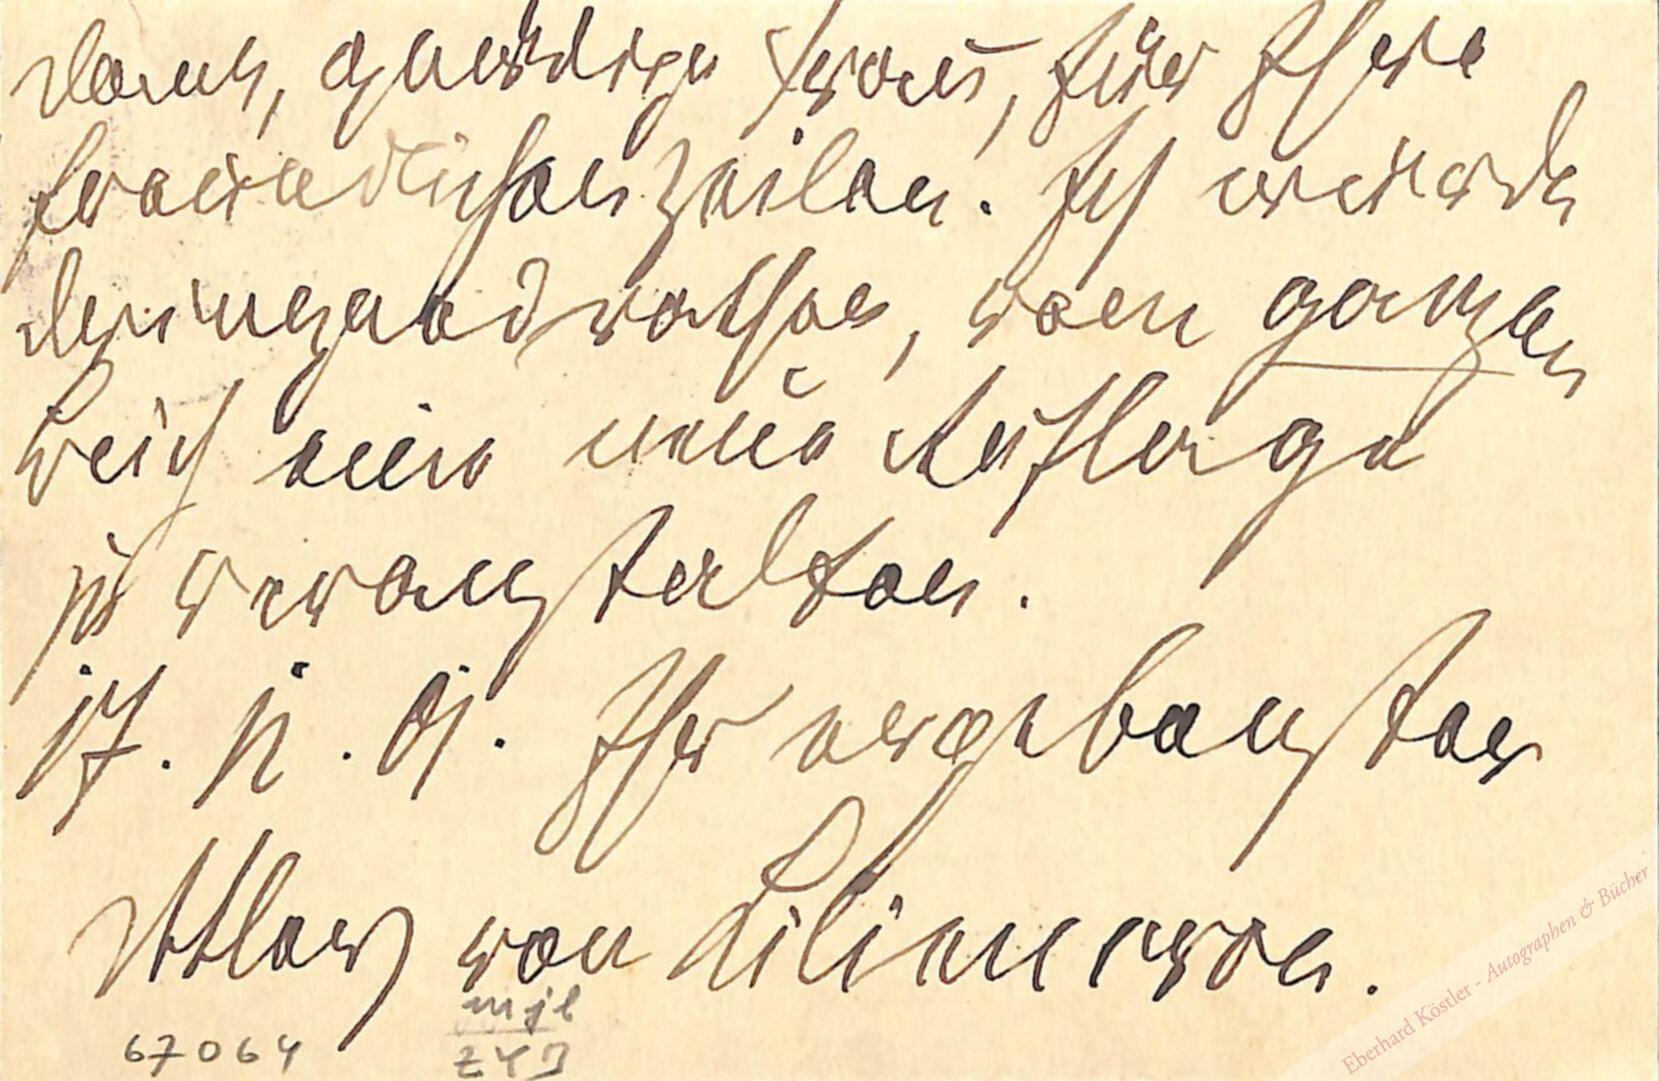 Dank, gnädige Frau, für Ihre
freundlichen Zeilen. Ich würde
dringend rathen, vom ganzen
Buch eine neue Auflage
zu veranstalten.
17. 11. 01. Ihr ergebenster
von Liliencron.
67064
Eberhard Köstler - Autographen & Bücher